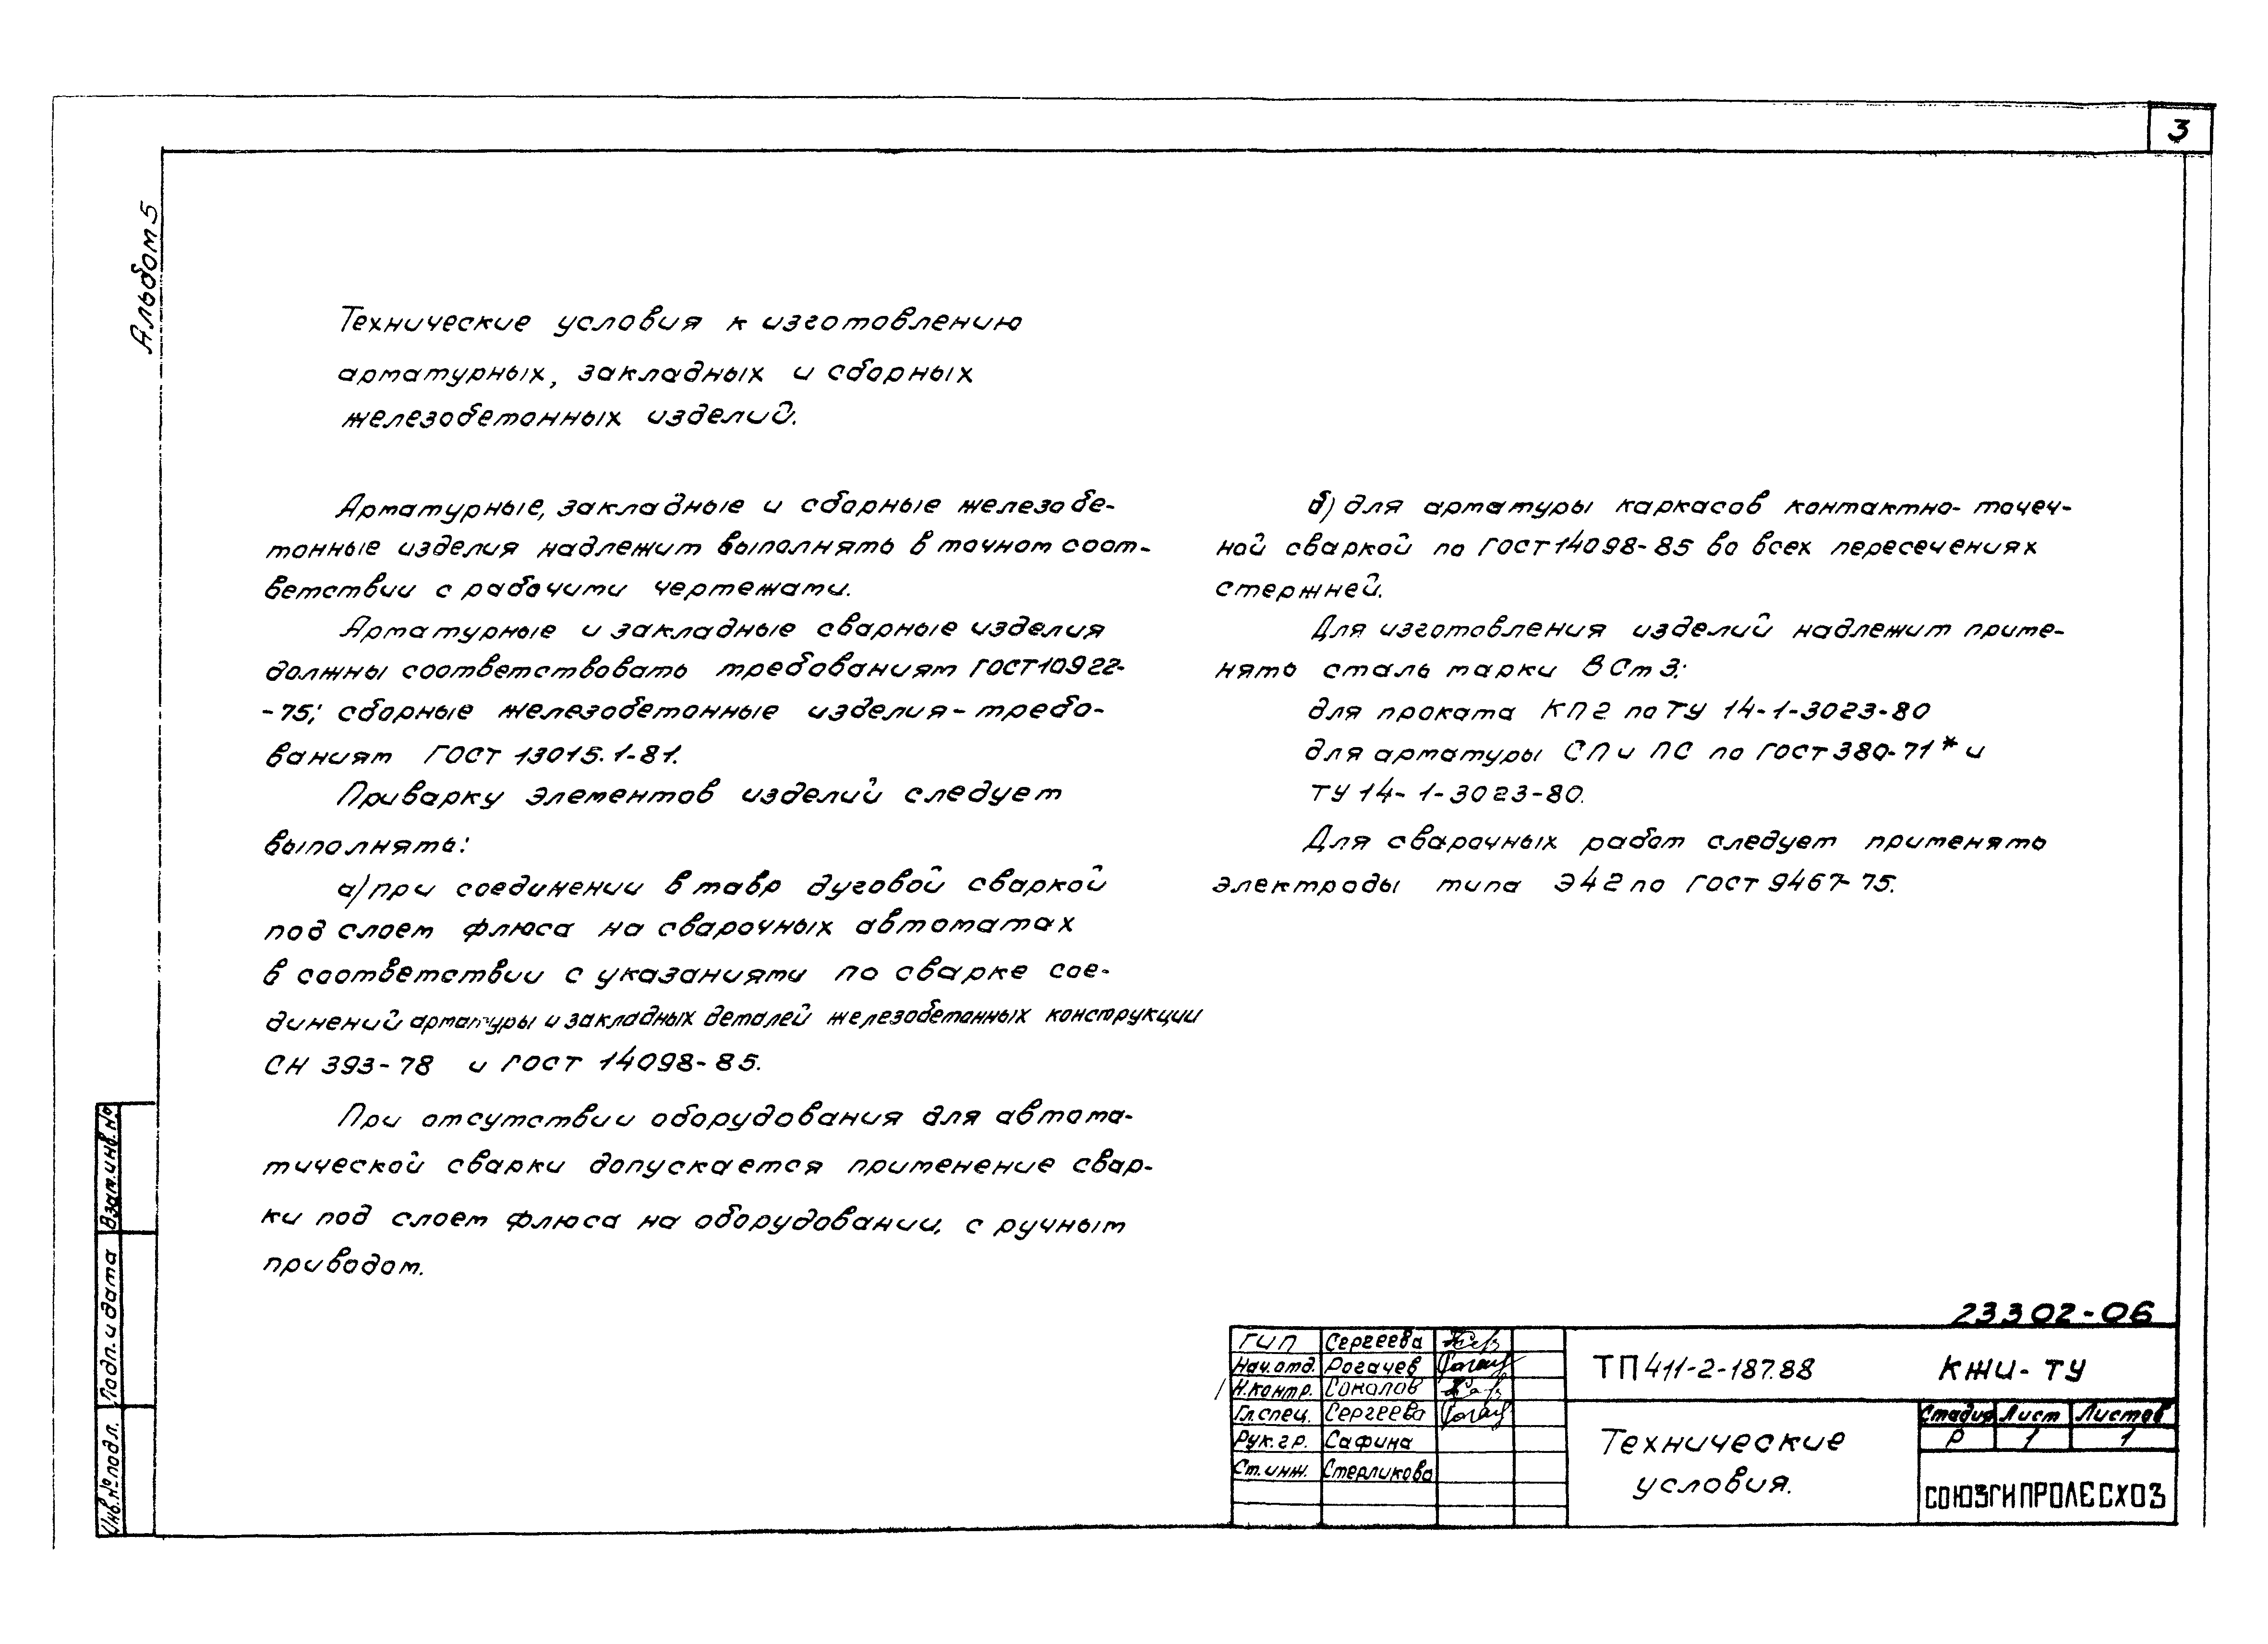 3
Альбом 5
Технические условия к изготовлению
арматурных, закладных и сборных
железобетонных изделий.
Арматурные, закладные и сборные железобе-
тонные изделия надлежит выполнять в точном соот-
ветствии с рабочими чертежами.
Арматурные и закладные сварные изделия
должны соответствовать требованиям ГОСТ 10922-
-75; сборные железобетонные изделия - требо-
ваниям ГОСТ 13015.1-81.
Приварку элементов изделий следует
выполнять:
а) при соединении в тавр дуговой сваркой
под слоем флюса на сварочных автоматах
в соответствии с указаниями по сварке сое-
динений арматуры и закладных деталей железобетонных конструкции
СН 393-78 и ГОСТ 14098-85.
При отсутствии оборудования для автома-
тической сварки допускается применение свар-
ки под слоем флюса на оборудовании, с ручным
приводом.
б) для арматуры каркасов контактно-точеч-
ной сваркой по ГОСТ 14098-85 во всех пересечениях
стержней.
Для изготовления изделий надлежит приме-
нять сталь марки ВСт3:
для проката КП2 по ТУ 14-1-3023-80
для арматуры СП и ПС по ГОСТ 380-71* и
ТУ 14-1-3023-80.
Для сварочных работ следует применять
электроды типа Э42 по ГОСТ 9467-75.
Взам.инв.№
Подп. и дата
Инв.№ подл.
23302-06
ГИП Сергеева
Нач.отд. Рогачев
Н.контр. Соколов
Гл.спец. Сергеева
Рук.гр. Сафина
Ст.инж. Стерликова
ТП 411-2-187.88 КЖИ-ТУ
Технические
условия.
Стадия Лист Листов
Р 1 1
СОЮЗГИПРОЛЕСХОЗ